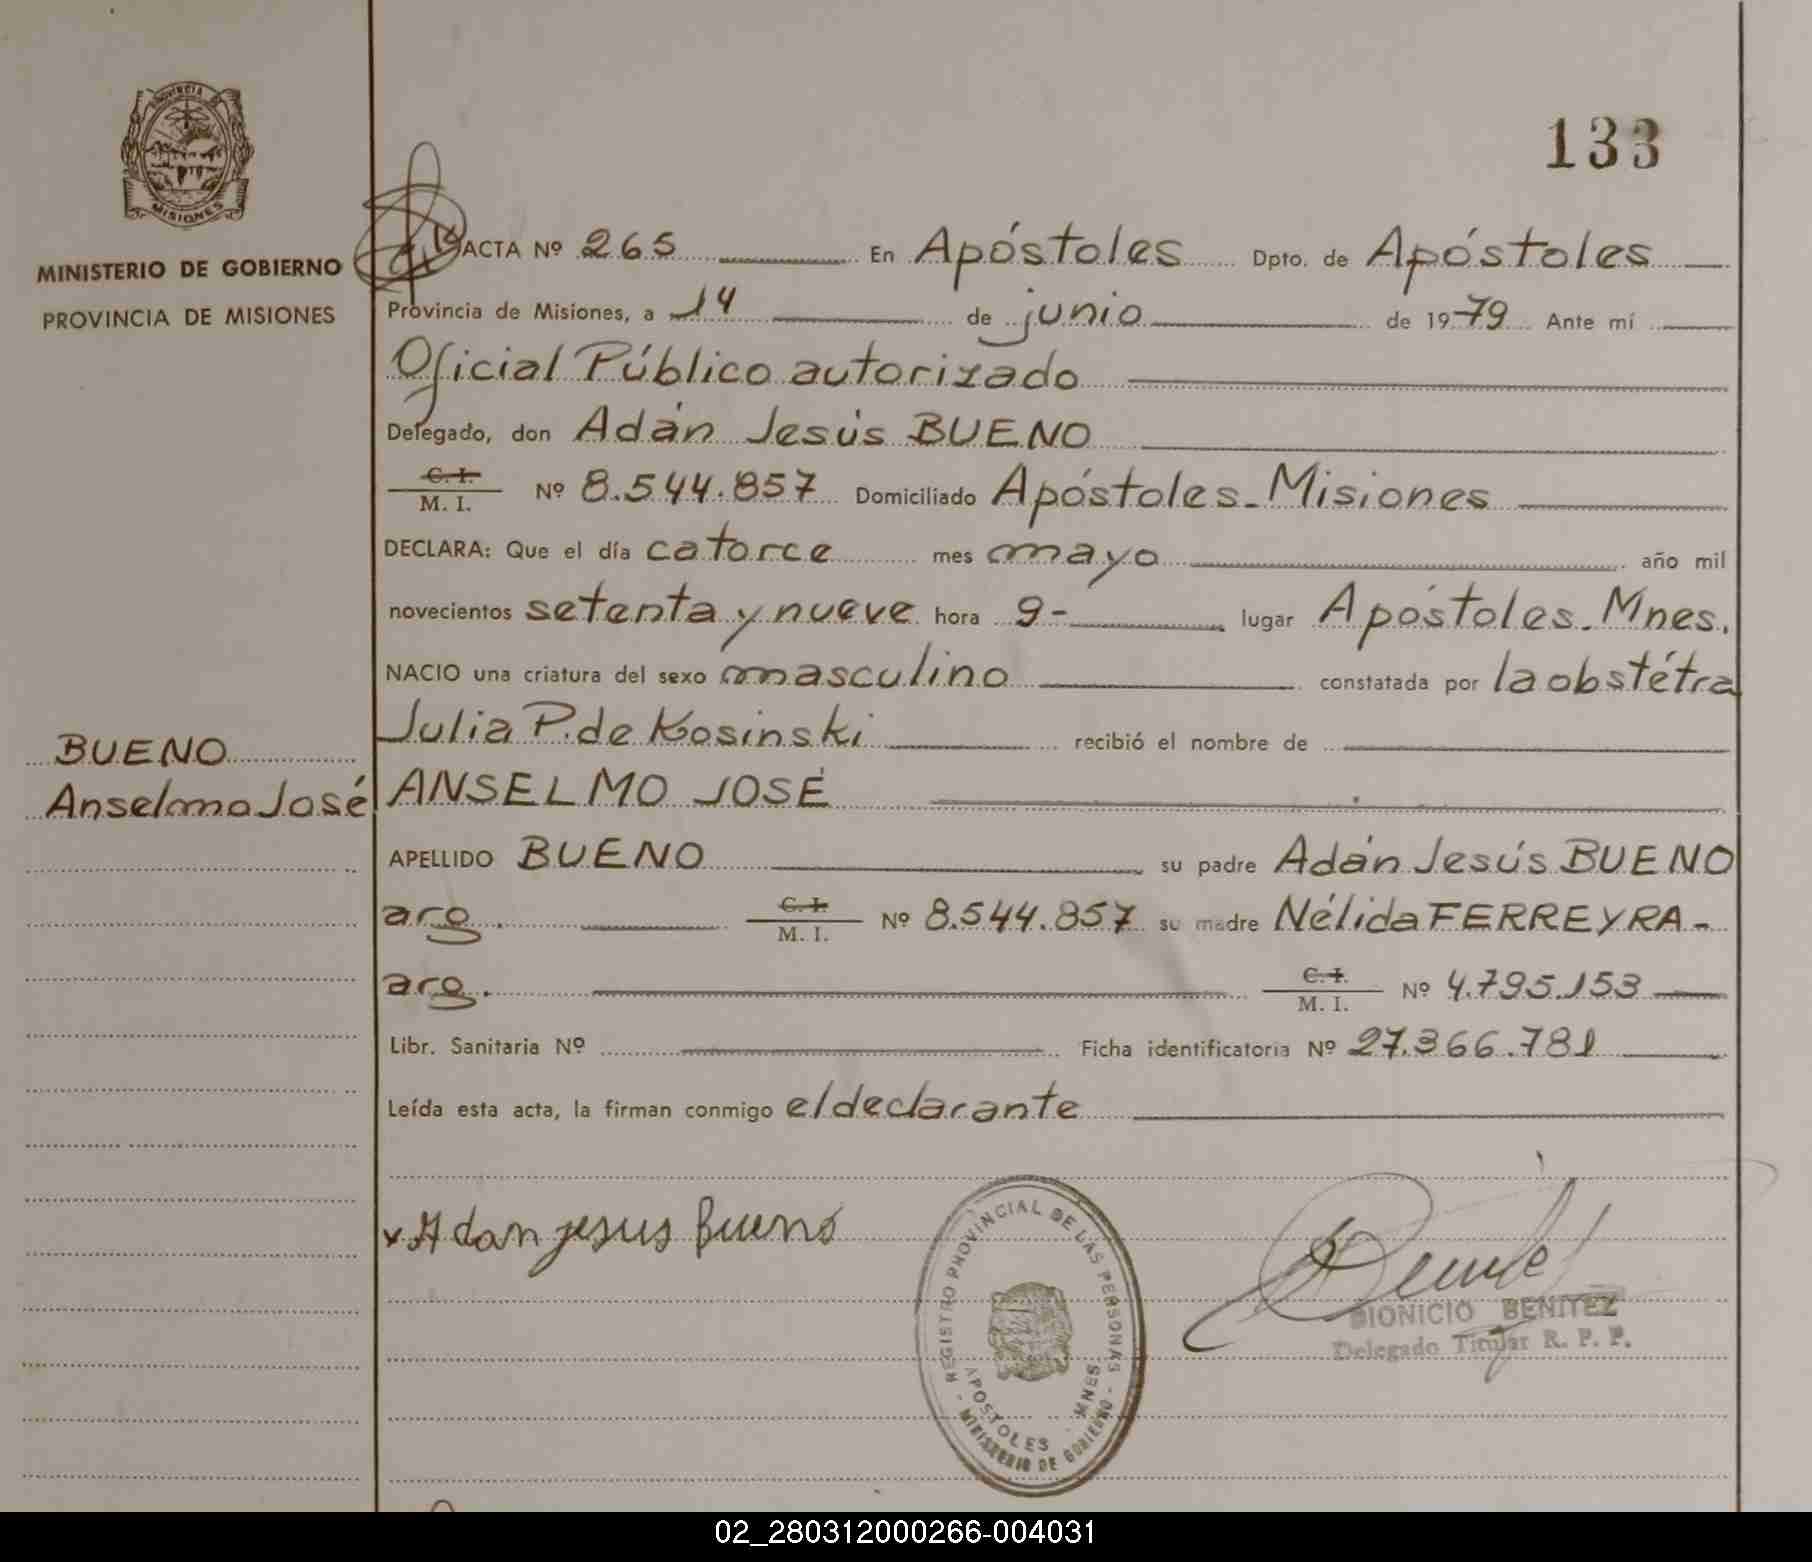 PROVINCIA DE
MISIONES
MINISTERIO DE GOBIERNO
PROVINCIA DE MISIONES
133
ACTA Nº 265 En Apóstoles Dpto. de Apóstoles
Provincia de Misiones, a 14 de junio de 1979 Ante mí
Oficial Público autorizado
Delegado, don Adán Jesús BUENO
C. I.
M. I. Nº 8.544.857 Domiciliado Apóstoles-Misiones
DECLARA: Que el día catorce mes mayo año mil
novecientos setenta y nueve hora 9- lugar Apóstoles-Mnes.
NACIO una criatura del sexo masculino constatada por la obstétra
Julia P. de Kosinski recibió el nombre de
BUENO
Anselmo José
ANSELMO JOSÉ
APELLIDO BUENO su padre Adán Jesús BUENO
arg. C. I.
M. I. Nº 8.544.857 su madre Nélida FERREYRA-
arg. C. I.
M. I. Nº 4.795.153
Libr. Sanitaria Nº Ficha identificatoria Nº 27.366.781
Leída esta acta, la firman conmigo el declarante
x Adan jesus Bueno
REGISTRO PROVINCIAL DE LAS PERSONAS
APOSTOLES - MNES
- MINISTERIO DE GOBIERNO -
DIONICIO BENITEZ
Delegado Titular R. P. P.
02_280312000266-004031